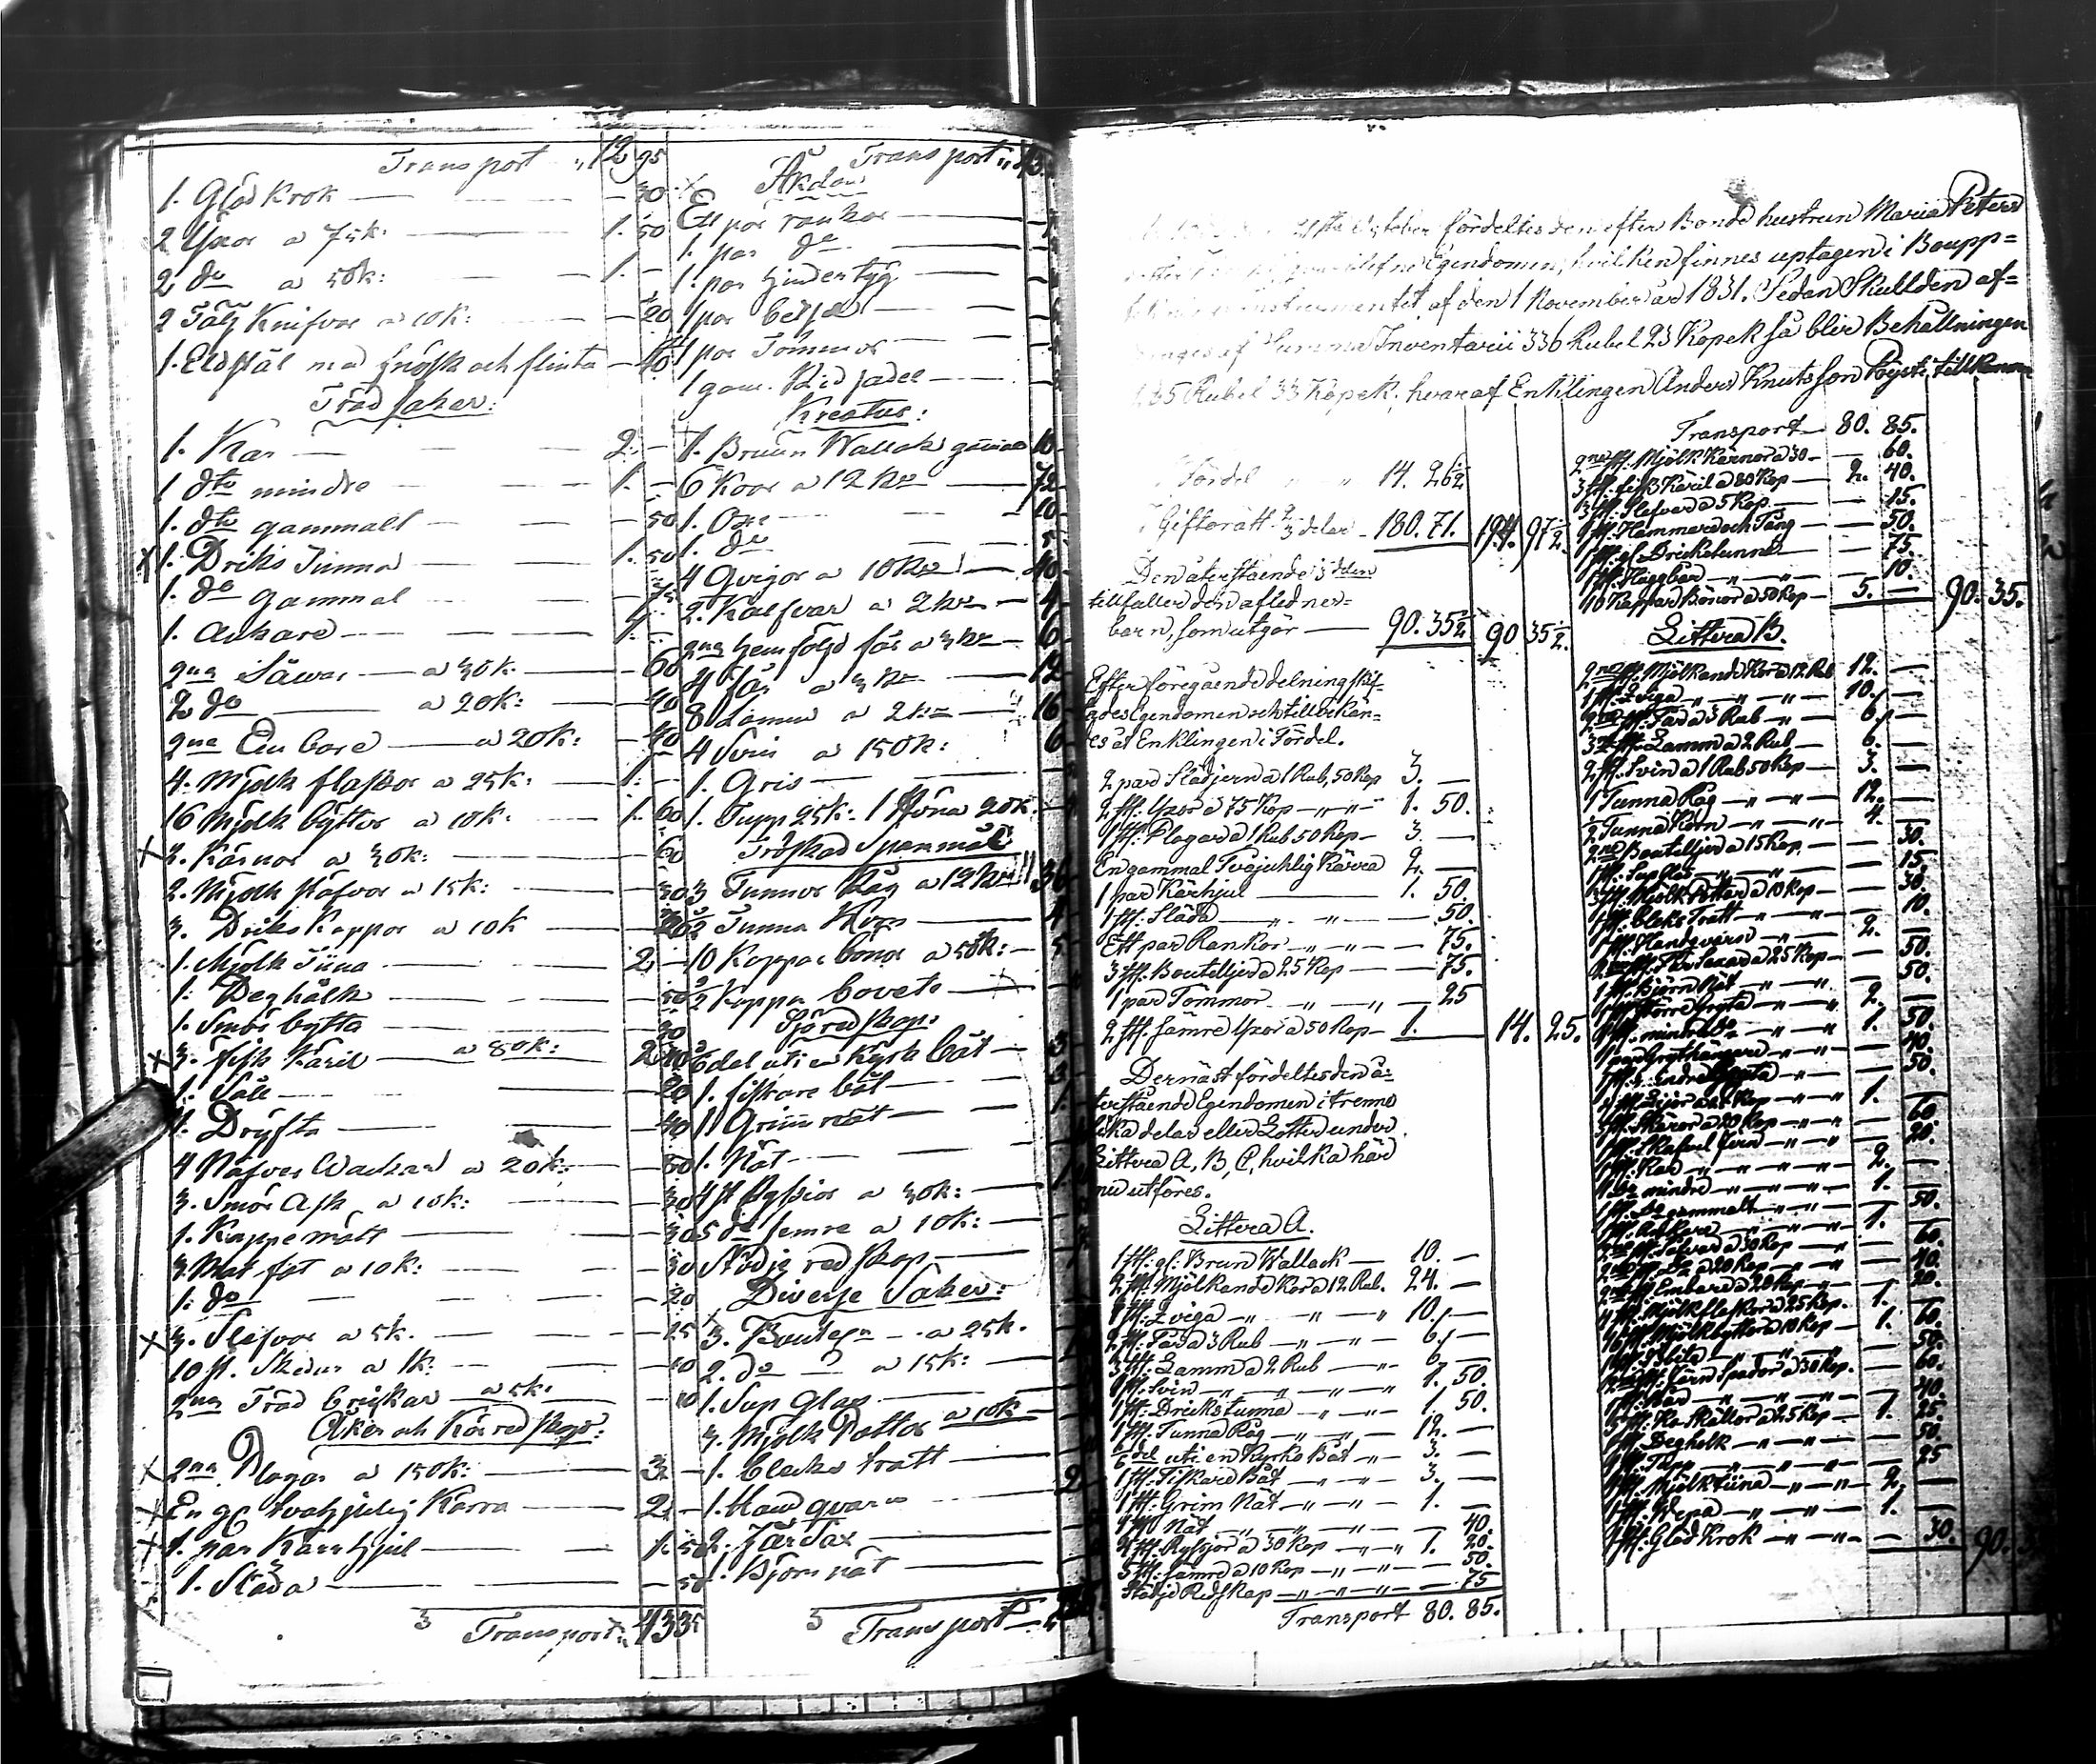 Transport „ 12 95
1. Glöd Krok — 30
2 Yxor a 75k: — 1. 50
2 do a 50k: — 1. —
2 Tälg Knifvar a 10k: — 20
1. Eldstål med fnösk och flinta — 40
Träd saker:
1. Kar — 2. —
1 dto mindre — 1. —
1. dto gammalt — 50
1. Driks Tunna — 1. 50
1. do gammal — 75
1. Ankare — 1.
2na Såwar — a 30k. — 60
2 do — a 20k: — 40
2na Em bare — a 20k: — 40
4. Mjölk flaskor a 25k: — 1. —
16 Mjölk byttor a 10k. — 1. 60
2. Kärnor a 30k: — 60
2. Mjölk stäfvor a 15k: — 30
3. Driks Kappor a 10k — 30
1. Mjölk Tiina — 2. —
1. Deghålk — 50
1. Smör bytta — 20
3. fisk Käril — a 80k: — 2 40
1. Såll — 20
1. Dryfta — 40
4 Näfver Wackar a 20k: — 80
3. Smör Ask a 10k: — 30
1. Kappe mått — 30
3. Mat fat a 10k: — 30
1. do — 20
3. Slefvar a 5k. — 15
10 st. Skedar a 1k: — 10
2na Träd brickar — a 5k. — 10
Åker och Körredskap:
2na Plogar a 150k: — 3. —
En gl tvåhjulig Kärra — 2. —
1. par Kärr hjul — 1. 50
1. Släda — 50
Transport „ 43 35
Transport „ 43
Åkdon
Ett par rankor —
1. par do —
1. par hinder tyg —
1 par betsel —
1 par Tömmor —
1 gam. Rid sadel —
Kreatur:
1. Bruun Wallak gammal 10
6 Koor a 12 Rr — 72
1. Oxe — 10
1. do — 5
4 Qvigor a 10 Rr — 40
2. Kalfvar a 2 Rr — 4
2na hemföljd får a 3 Rr — 6
4 får a 3 Rr — 12
8 Lamm a 2 Rr — 16
4 Svin a 150k: — 6
1. Gris —
1. Tupp 25k: 1 Höna 20k:
Tröskad Spanmål
3 Tunnor Råg a 12 Rr 36
Tunna Korn — 4
10 Kappar bönor a 50k: — 5
Kappa bovete —
Sjöredskap:
del uti en Kyrk båt — 3
1. fiskare båt — 3
1 Grimnät — 1
1. Nät —
4 st Ryssior a 30k: — 1
5 do semre a 10k: —
Städje redskap —
Diverse Saker:
3. Boutelr — a 25k.
2. do — a 15k:
1. Sup Glas —
3. Mjölk Pottor a 10k —
1. blecks tratt —
1. Hand qvarn — 2
2. får Sax —
1. Björn nät —
Transport
21sta October fördeltes den efter Bonde hustrun Maria Peters
Egendomen, hvilken finnes uptagen i Boupp=
instrumentet af den 1 November år 1831. Sedan Skullden af=
af Summa Inventarii 336 Rubel 23 Kopek så blir Behållningen
Rubel 33 Kopek, hvaraf Enklingen Anders Knutsson Röysti tillkommer
Fördel — 14. 26½
Giftorätt ⅔ delar — 180. 71. 194. 97½.
Den återstående ⅓ delen
tillfaller den aflednes
barn, som utgör — 90. 35½ 90 35½.
Efter föregående delning skif=
tades Egendomen och tillerkän=
des åt Enklingen i Fördel.
2 par Slädjern a 1 Rub, 50 Kop 3. —
2 st. Yxor a 75 Kop — 1. 50.
2 st. Plogar a 1 Rub 50 Kop — 3. —
En gammal Tvåhjuhlig Kärra 2. —
1 par Kärhjul — 1. 50.
1 st. Släda — 50.
Ett par Rankor — 75.
3 st. Boutelljer a 25 Kop — 75.
1 par Tömmor — 25
2 st. sämre Yxor a 50 Kop — 1. — 14. 25.
Dernäst fördeltes den å=
terstående Egendomen i trenne
lika delar eller Lotter under
Littera A, B, C, hvilka här
nu utföres.
Littera A.
1 st. gl: Brun Wallack — 10. —
2 st. Mjölkande Kor a 12 Rub. 24. —
1 st. Qviga — 10. —
2 st. Får a 3 Rub — 6. —
3 st. Lamm a 2 Rub — 6. —
1 st. Svin — 1. 50.
1 st. Drickstunna — 1. 50.
1 st. Tunna Råg — 12. —
del uti en Kyrko Båt — 3. —
1 st. Fiskare Båt — 3. —
1 st. Grim Nät — 1. —
1 st. Nät — 40.
4 st. Ryssjor a 30 Kop — 1. 20.
5 st. sämre a 10 Kop — 50.
Städje Redskap — 75
Transport 80. 85.
Transport — 80. 85.
2ne st. Mjölk Kärnor a 30 — 60.
3 st. fisk Käril a 80 Kop — 2. 40.
3 st. Slefvar a 5 Kop — 15.
1 st. Hammare och Tång — 50.
1 st. gl. Drickstunna — 75.
1 st. — 10.
10 Kappar Bönor a 50 Kop — 5. — 90. 35.
Littera B.
2ne st. Mjölkande Kor a 12 Rub 12. —
1 st. Qviga — 10. —
2ne st. Får a 3 Rub — 6. —
3 st. Lamm a 2 Rub — 6. —
2 st. Svin a 1 Rub 50 Kop — 3. —
1 Tunna Råg — 12. —
Tunna Korn — 4. —
2ne Boutelljer a 15 Kop — 30.
1 st. Sup Glas — 15.
3 st. Mjölk Pottor a 10 Kop — 30.
1 st. blecks Tratt — 10.
1 st. Handqvarn — 2. —
2ne st. Får Saxar a 25 Kop — 50.
1 st. Björn Nät — 50.
1 st. större Gryta — 2. —
1 st. mindre do — 1. 50.
1 par Grythängare — 40.
1 st. — 50.
— 1. —
3 st. Skäror a 20 Kop — 60
1 st. — 20.
1 st. Kar — 2. —
1 do mindre — 1. —
1 st. do gammalt — 50.
1 st. Ankare — 1. —
2ne st. Såvar a 30 Kop — 60.
2ne st. do a 20 Kop — 40.
st. Embare a 20 Kop — 20.
4 st. Mjölkflaskor a 25 Kop. 1. —
16 st. Mjölkbyttor a 10 Kop — 1. 60.
— 50.
2ne st. Järn Spador a 30 Kop. — 60.
— 40.
5 st. Ko Skällor a 25 Kop — 1. 25.
1 st. Degholk — 50.
1 st. Tupp — 25
1 st. Mjölktiina — 2. —
1 st. — 1. —
1 st. Glöd Krok — 30. 90.